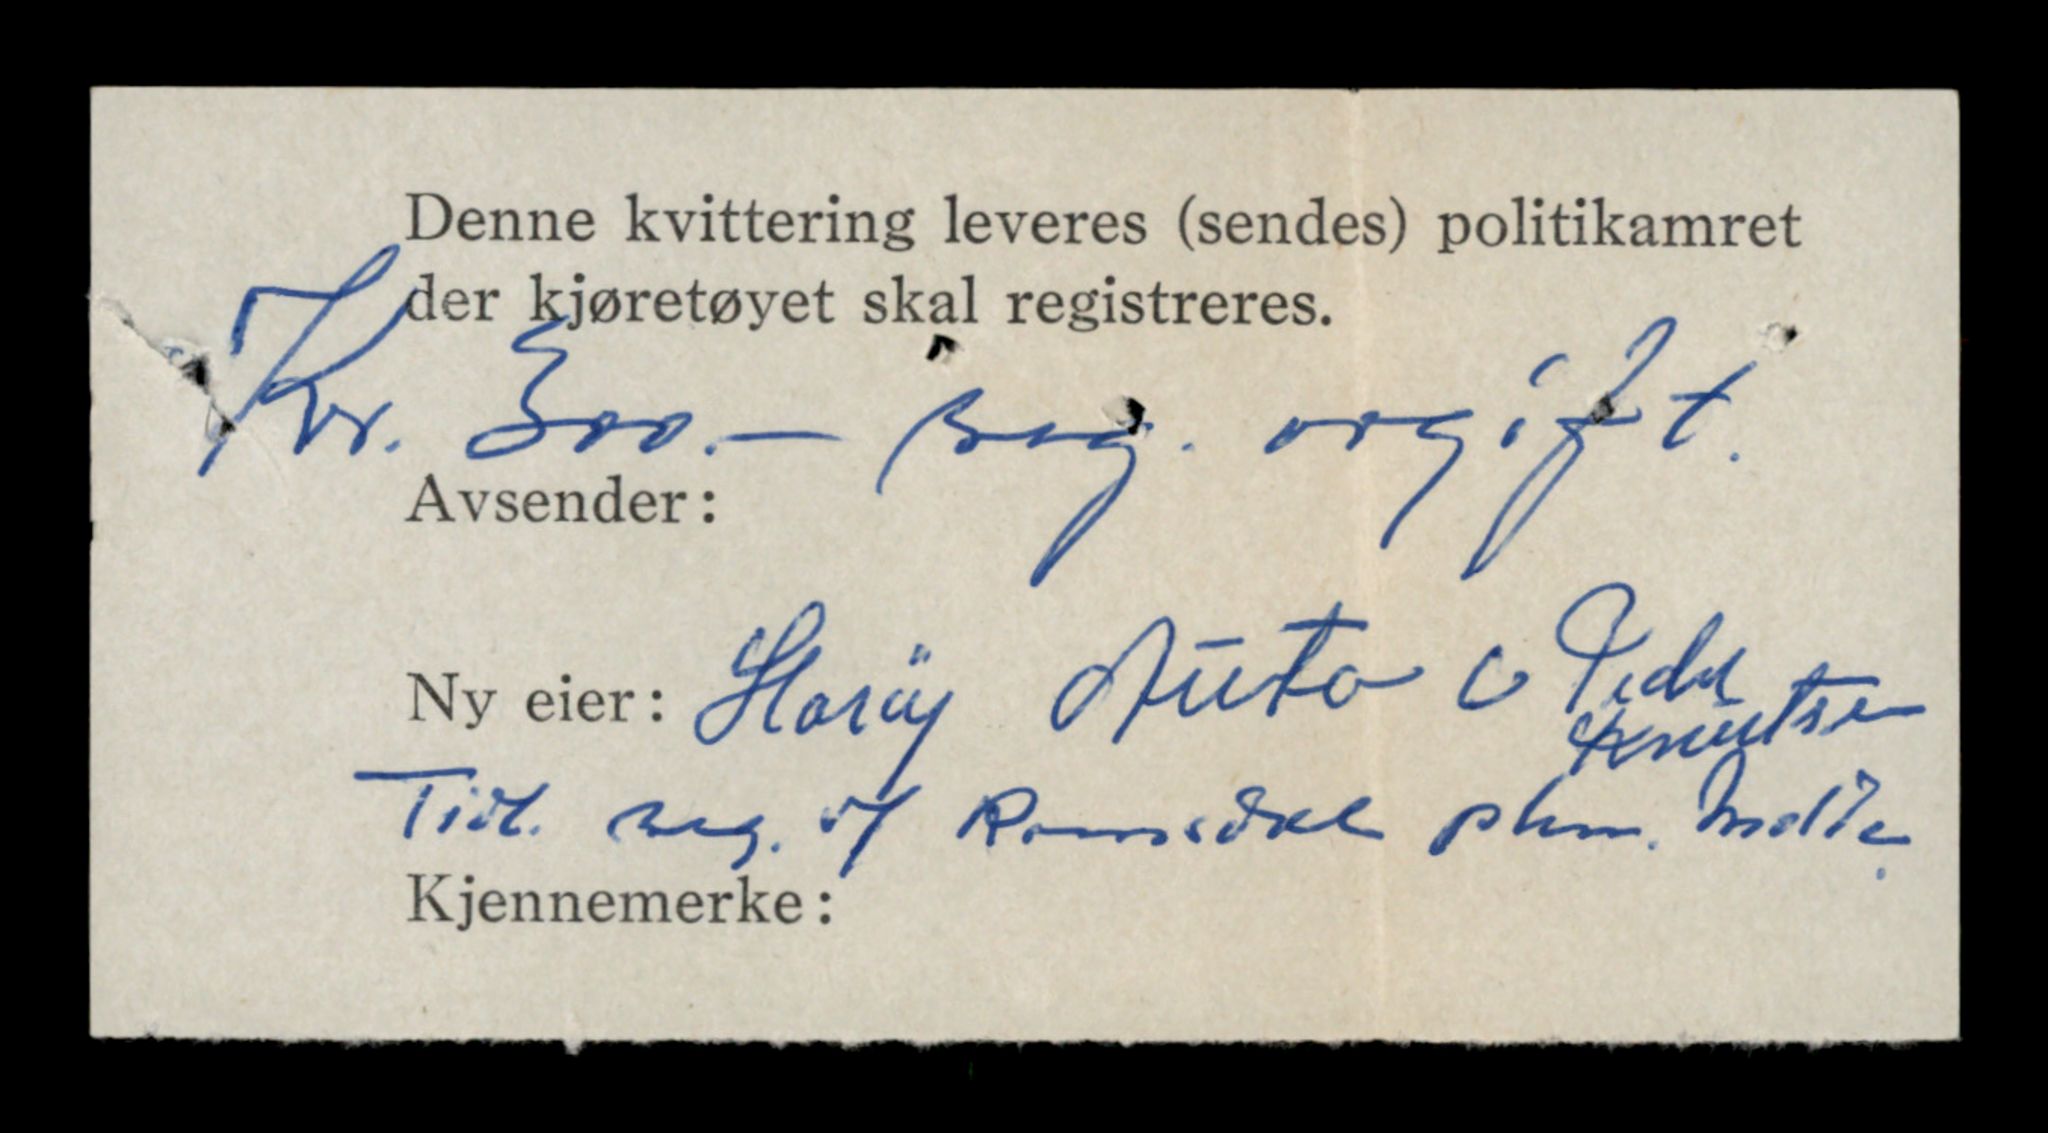 Denne kvittering leveres (sendes) politikamret
der kjøretøyet skal registreres.
Kr. 300.— reg. avgift.
Avsender:
Ny eier: Harøy Auto v Peder
Knutsen
Tidl. reg. v/ Romsdal pkm. Molde.
Kjennemerke: